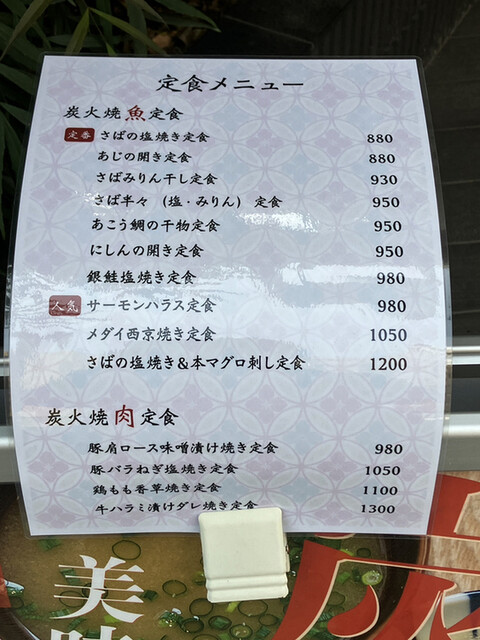 定食メニュー
炭火焼魚定食
定番 さばの塩焼き定食 880
あじの開き定食 880
さばみりん干し定食 930
さば半々 (塩・みりん) 定食 950
あこう鯛の干物定食 950
にしんの開き定食 950
銀鮭塩焼き定食 980
人気 サーモンハラス定食 980
メダイ西京焼き定食 1050
さばの塩焼き&本マグロ刺し定食 1200
炭火焼肉定食
豚肩ロース味噌漬け焼き定食 980
豚バラねぎ塩焼き定食 1050
鶏もも香草焼き定食 1100
牛ハラミ漬けダレ焼き定食 1300
美